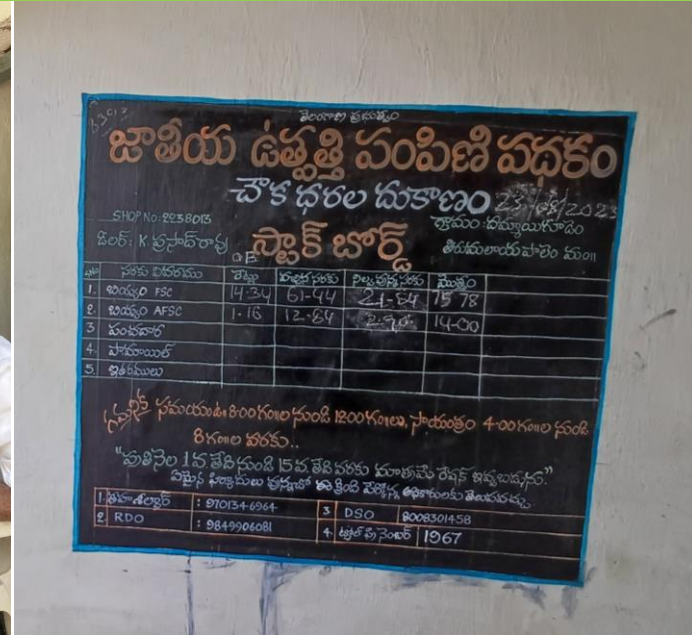 తెలంగాణ ప్రభుత్వం
జాతీయ ఉత్పత్తి పంపిణి పథకం
చౌక ధరల దుకాణం 23/08/2023
SHOP No: 2238013
గ్రామం: దమ్మాయిగూడెం
డీలర్: K ప్రసాద్‌రావు స్టాక్ బోర్డ్ తిరుమలాయపాలెం మం॥
OB
సరకు వివరాలు మొత్తం
1. బియ్యం FSC 14.34 61-44 21-84 75 78
2. బియ్యం AFSC 1.16 12.84 14-00
3 పంచదార
4. పామాయిల్
5. ఇతరములు
గమనిక సమయం ఉ॥ 8-00 గం॥ల నుండి 12.00 గం॥లు, సాయంత్రం 4-00 గం॥ల నుండి
8 గం॥ల వరకు..
"ప్రతినెల 1వ. తేది నుండి 15వ. తేది వరకు మాత్రమే రేషన్ ఇవ్వబడును."
ఏమైన ఫిర్యాదులు ఉన్నచో ఈ క్రింది పేర్కొన్న అధికారులకు తెలియపరచవచ్చు
1. తహశీల్దార్ : 9701346964 3 DSO 8008301458
2 RDO : 9849906081 4. టోల్ ఫ్రీ నెంబర్ 1967